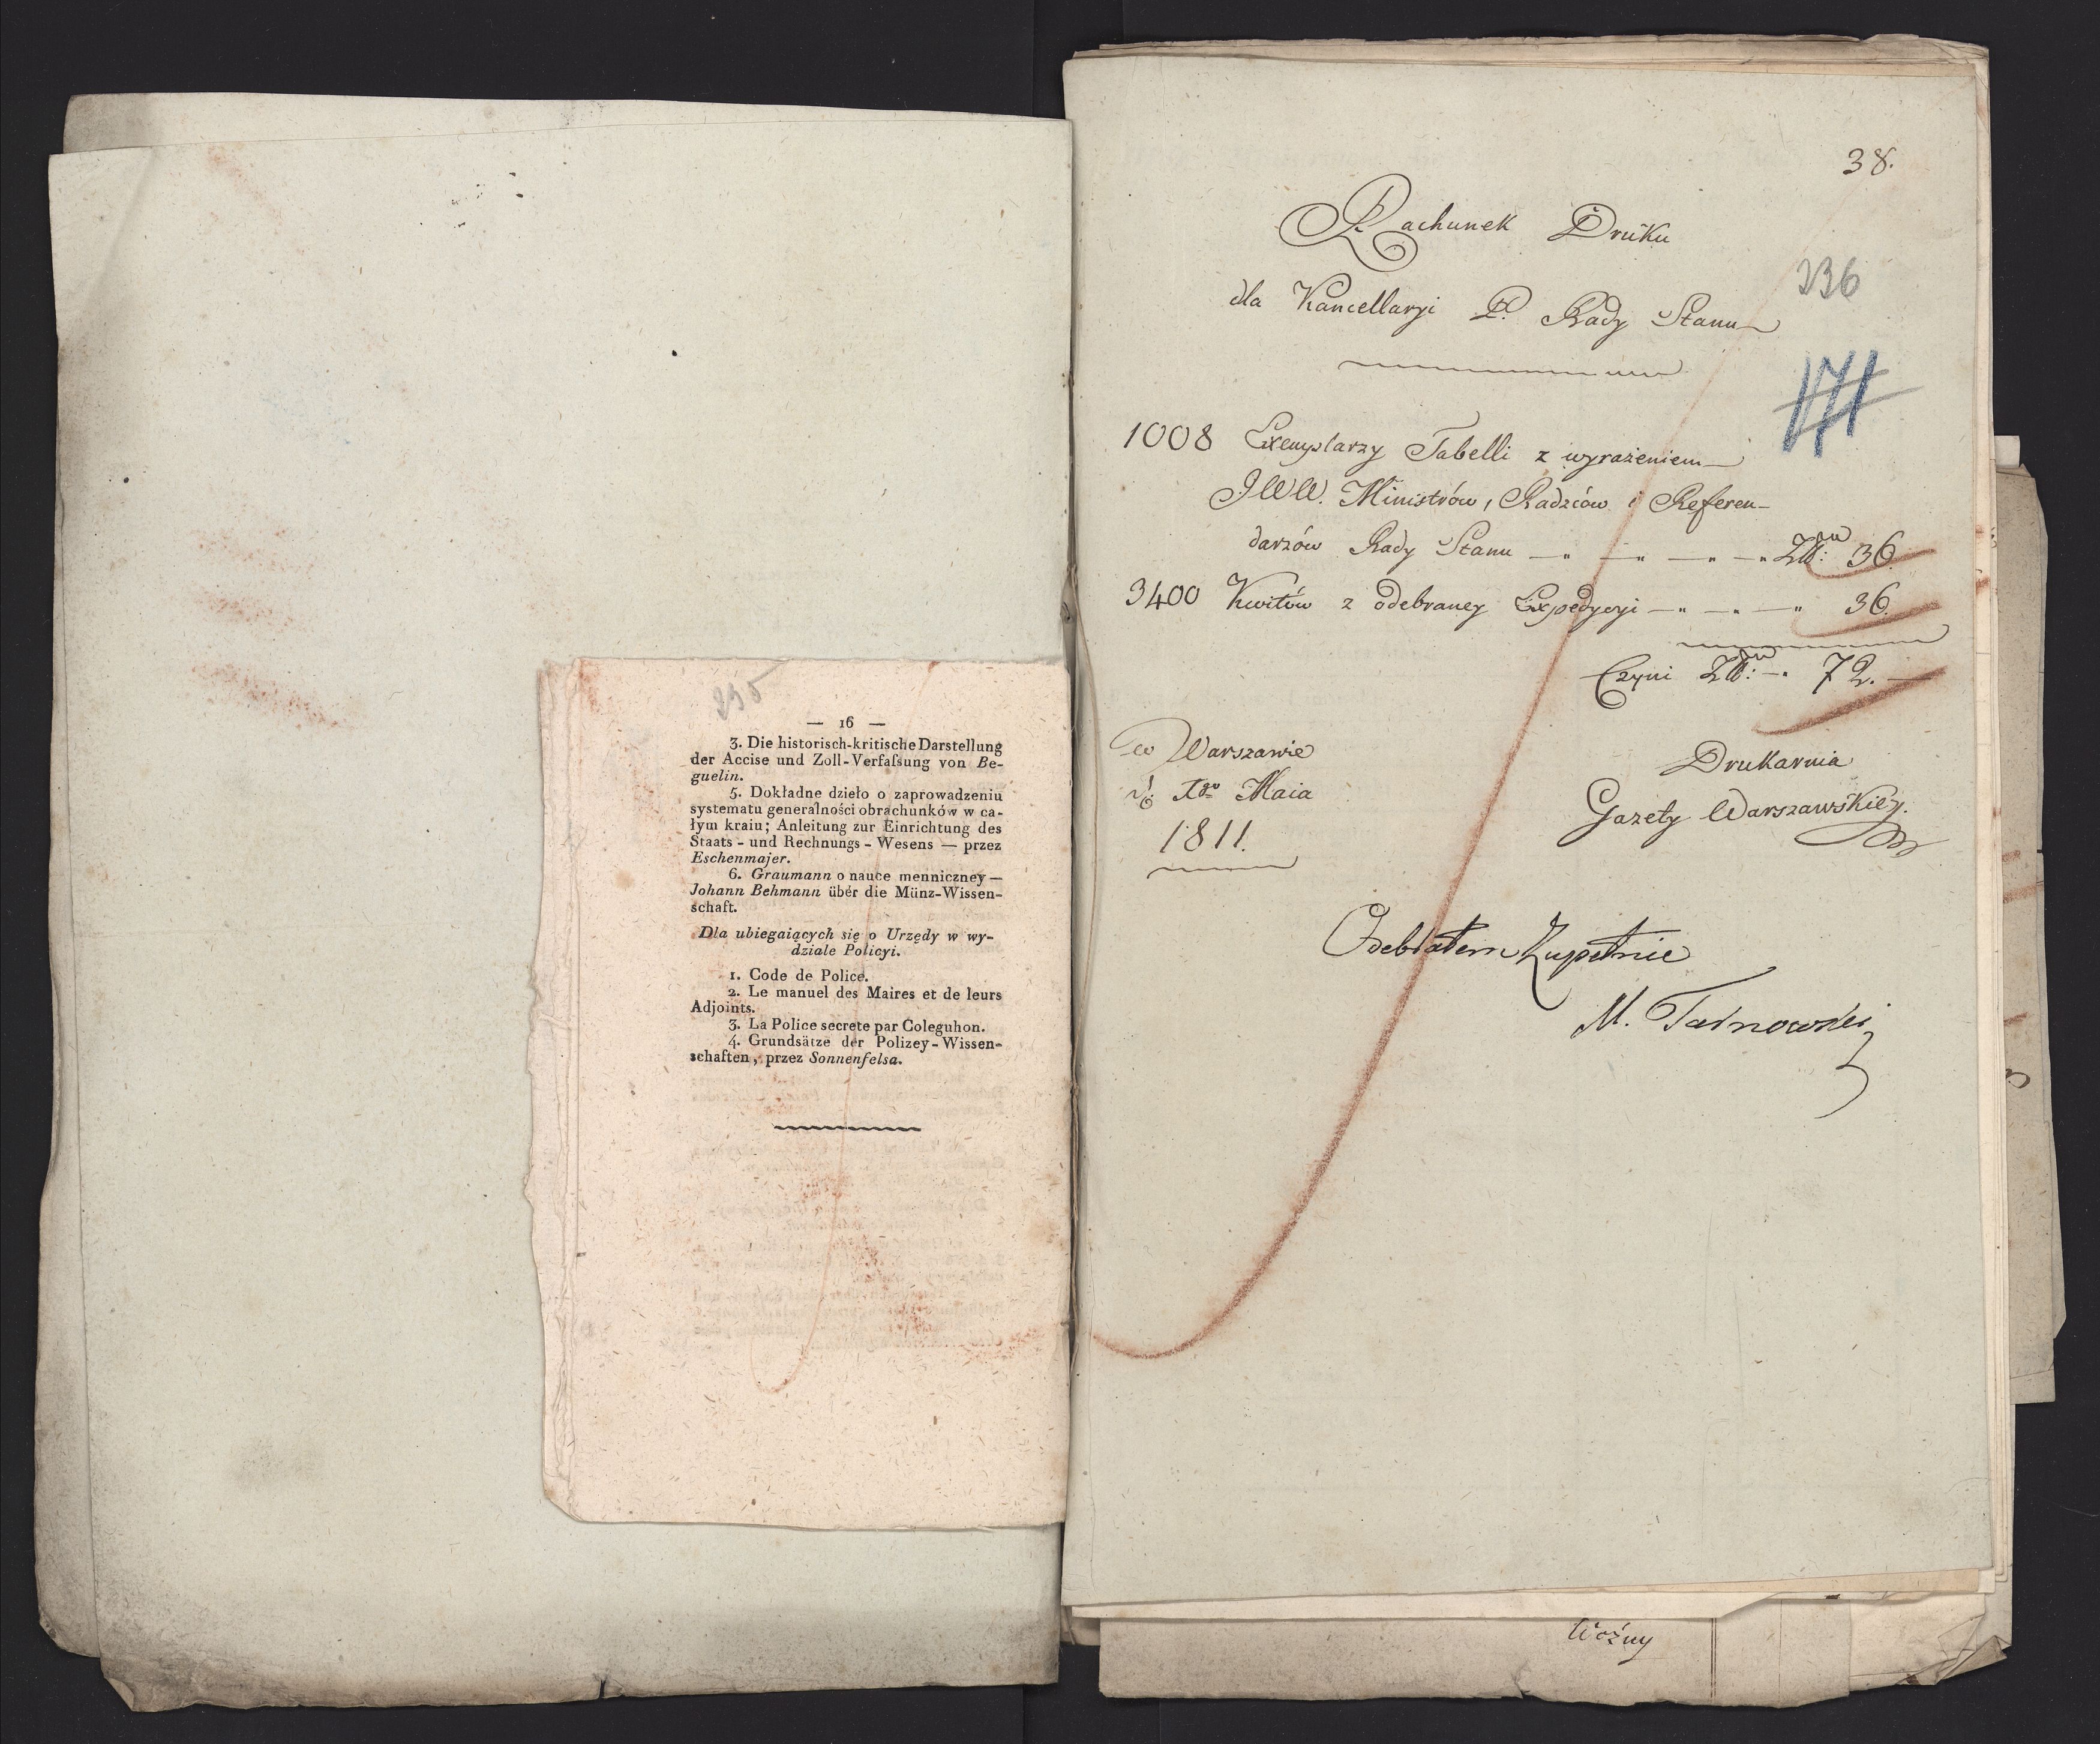 235
— 16 —
3. Die historisch-kritische Darstellung
der Accise und Zoll-Verfaſsung von Be-
guelin.
5. Dokładne dzieło o zaprowadzeniu
systematu generalności obrachunków w ca-
łym kraiu; Anleitung zur Einrichtung des
Staats - und Rechnungs - Wesens — przez
Eschenmajer.
6. Graumann o nauce menniczney —
Johann Behmann über die Münz-Wissen-
schaft.
Dla ubiegaiących się o Urzędy w wy-
dziale Policyi.
1. Code de Police.
2. Le manuel des Maires et de leurs
Adjoints.
3. La Police secrete par Coleguhon.
4. Grundsätze der Polizey-Wissen-
schaften, przez Sonnenfelsa.
38.
Rachunek Druku
236
dla Kancellaryi P. Rady Stanu
171
1008 Exemplarzy Tabelli z wyrażeniem
JWW. Ministrów, Radzców i Referen-
darzów Rady Stanu — „ — „ — „ — „ Zł: 36.
3400 Kwitów z odebraney Expedycyi — „ — „ — „ 36.
Czyni Zł: —. 72.—
w Warszawie
Drukarnia
Maia
Gazety Warszawskiey.
1811.
Odebrałem Zupełnie
M. Tarnowski
Woźny